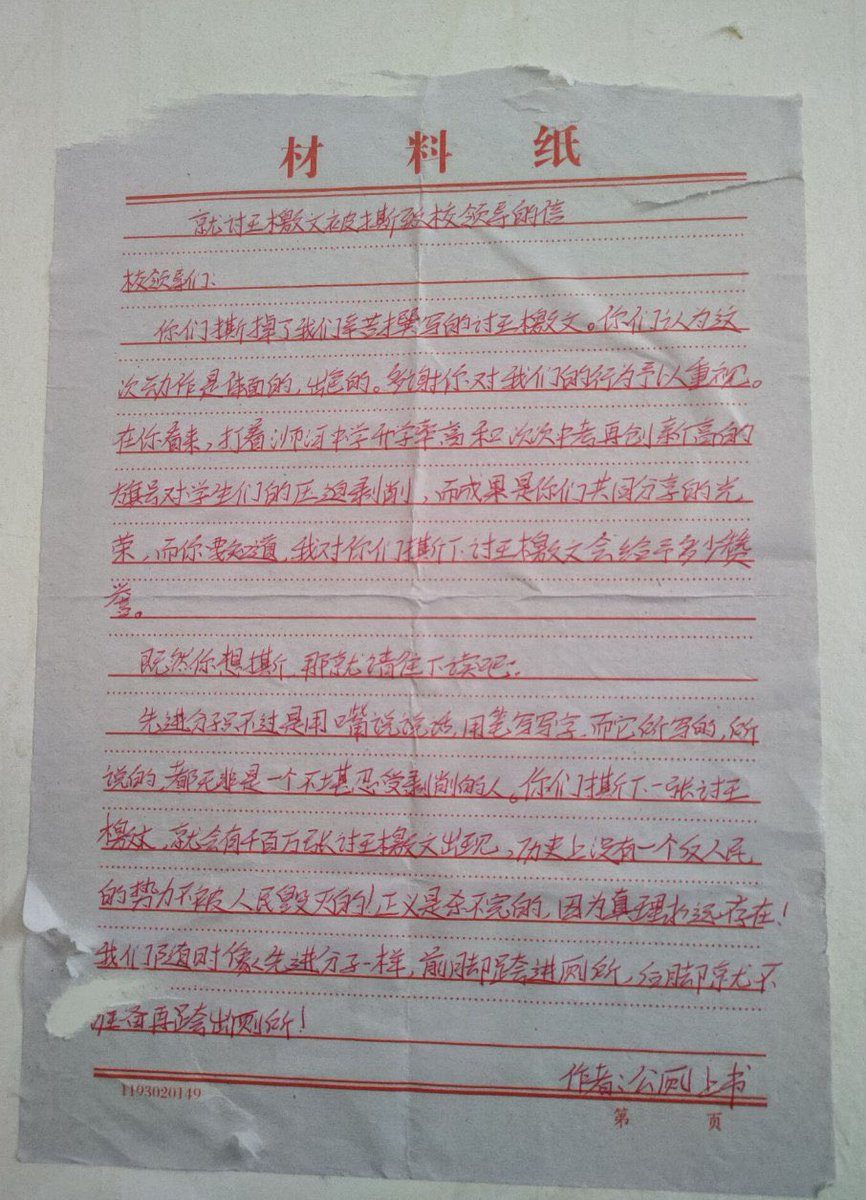 材料纸
就讨王檄文被撕致校领导的信
校领导们:
你们撕掉了我们辛苦撰写的讨王檄文。你们认为这
次动作是体面的,出色的。多谢你对我们的行为予以重视。
在你看来,打着浉河中学升学率高和次次中考再创新高的
旗号对学生们的压迫剥削,而成果是你们共同分享的光
荣,而你要知道,我对你们撕下讨王檄文会给予多少赞
誉。
既然你想撕,那就请往下读吧:
先进分子只不过是用嘴说说话,用笔写写字,而它所写的,所
说的,都无非是一个不堪忍受剥削的人。你们撕下一张讨王
檄文,就会有千百万张讨王檄文出现,历史上没有一个反人民
的势力不被人民毁灭的!正义是杀不完的,因为真理永远存在!
我们随时像先进分子一样,前脚跨进厕所,后脚就不
准备再跨出厕所!
作者:公厕上书
1193020149
第 页